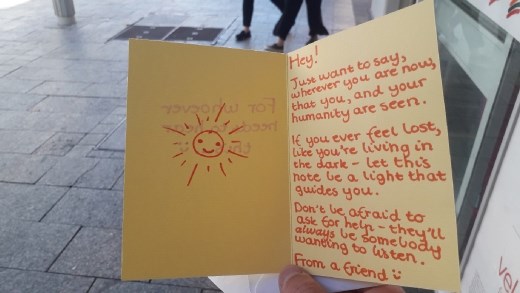 For whoever
needs to hear
this
Hey!
Just want to say,
wherever you are now,
that you, and your
humanity are seen.
If you ever feel lost,
like you're living in
the dark - let this
note be a light that
guides you.
Don't be afraid to
ask for help - they'll
always be somebody
wanting to listen.
From a friend